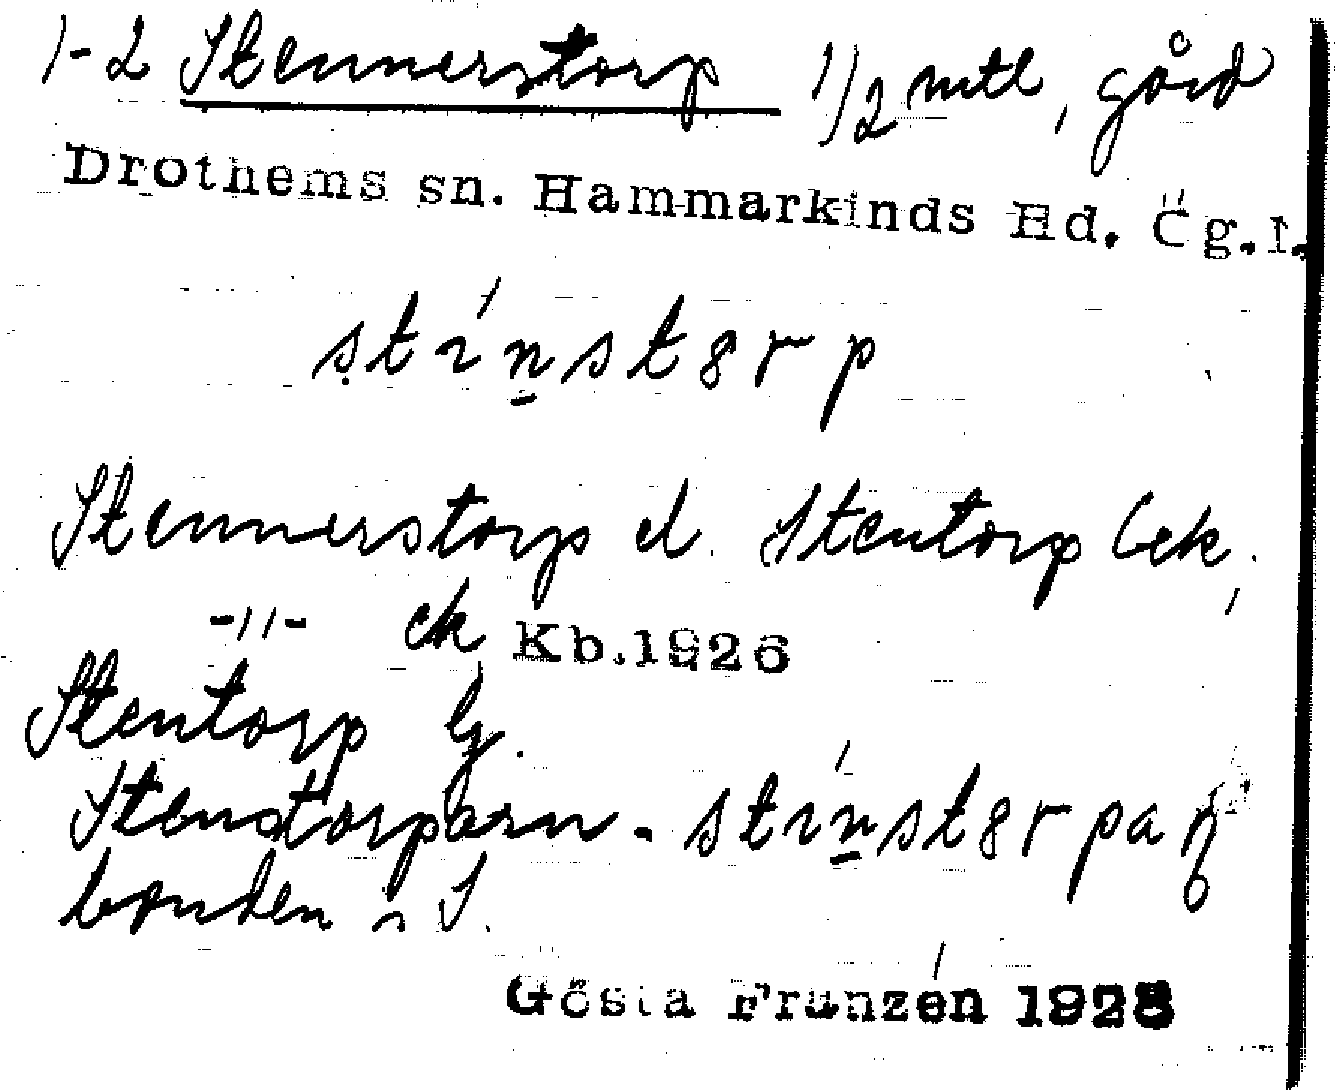 1-2 Stennerstorp 1/2 mtl, gård
Drothems sn. Hammarkinds Hd. Ög.l.
stínst8rp
Stennerstorp el. Stentorp Cek,
-"- ck Kb.1926
Stentorp
Stenstorparn - stínst8rpa
bonden i S.
Gösta Franzén 1928